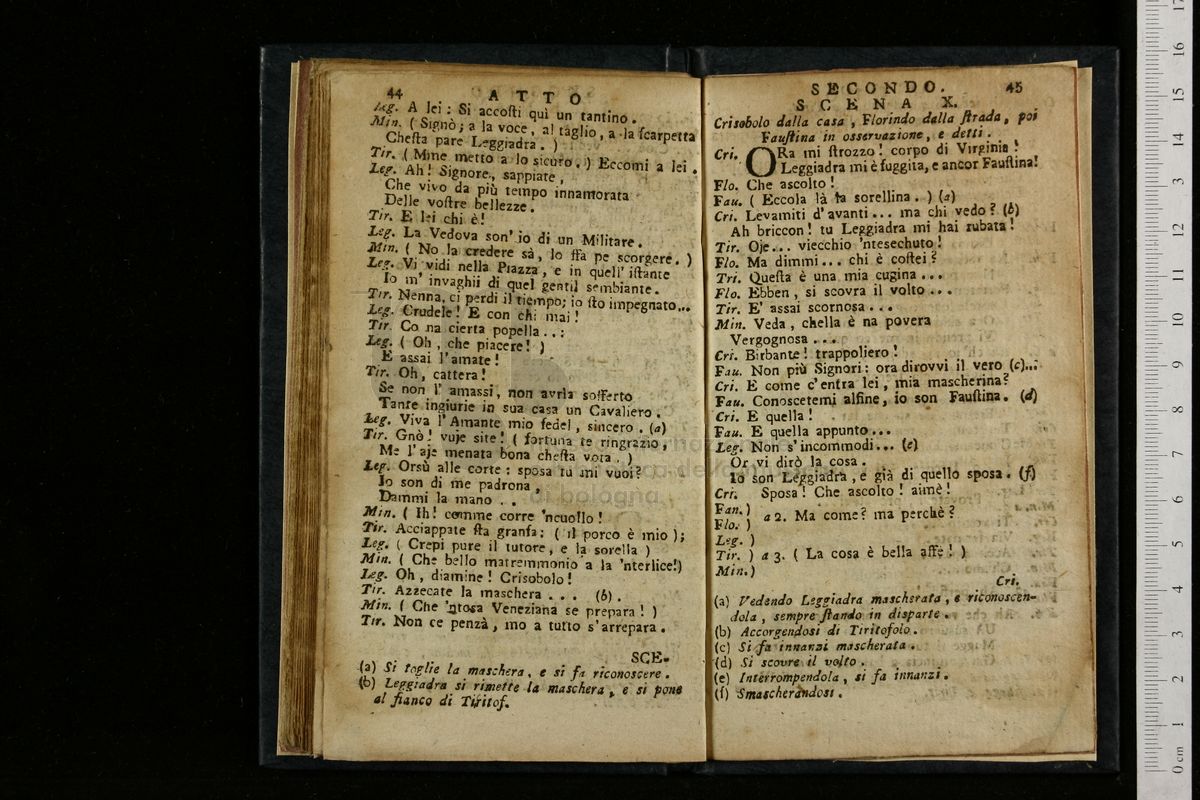 44 ATTO
Leg. A lei: Si accosti quì un tantino.
Min. ( Signò; a la voce, al taglio, a la scarpetta
Chesta pare Leggiadra. )
Tir. ( Mme metto a lo sicuro. ) Eccomi a lei.
Leg. Ah! Signore, sappiate,
Che vivo da più tempo innamorata
Delle vostre bellezze.
Tir. E lei chi è!
Leg. La Vedova son' io di un Militare.
Min. ( No la credere sà, lo ffa pe scorgere. )
Leg. Vi vidi nella Piazza, e in quell' istante
Io m' invaghii di quel gentil sembiante.
Tir. Nenna, ci perdi il tiempo; io sto impegnato...
Leg. Crudele! E con chi mai!
Tir. Co na cierta popella..:
Leg. ( Oh, che piacere! )
E assai l'amate!
Tir. Oh, cattera!
Se non l' amassi, non avria sofferto
Tante ingiurie in sua casa un Cavaliero.
Leg. Viva l'Amante mio fedel, sincero. (a)
Tir. Gnò! vuje site! ( fortuna te ringrazio,
Me l'aje menata bona chesta vota. )
Leg. Orsù alle corte: sposa tu mi vuoi?
Io son di me padrona,
Dammi la mano . . .
Min. ( Ih! comme corre 'ncuollo!
Tir. Acciappate sta granfa: ( il porco è mio );
Leg. ( Crepi pure il tutore, e la sorella )
Min. ( Che bello matremmonio a la 'nterlice!)
Leg. Oh, diamine! Crisobolo!
Tir. Azzecate la maschera . . . (b).
Min. ( Che 'ntosa Veneziana se prepara! )
Tir. Non ce penzà, mo a tutto s'arrepara.
SCE-
(a) Si toglie la maschera, e si fa riconoscere.
(b) Leggiadra si rimette la maschera, e si pone
al fianco di Tiritof.
SECONDO. 45
SCENA X.
Crisobolo dalla casa, Florindo dalla strada, poi
Faustina in osservazione, e detti.
Cri. ORa mi strozzo! corpo di Virginia!
Leggiadra mi è fuggita, e ancor Faustina!
Flo. Che ascolto!
Fau. ( Eccola là la sorellina. ) (a)
Cri. Levamiti d'avanti... ma chi vedo? (b)
Ah briccon! tu Leggiadra mi hai rubata!
Tir. Oje... viecchio 'ntesechuto!
Flo. Ma dimmi... chi è costei?
Tri. Questa è una mia cugina...
Flo. Ebben, si scovra il volto...
Tir. E' assai scornosa...
Min. Veda, chella è na povera
Vergognosa...
Cri. Birbante! trappoliero!
Fau. Non più Signori: ora dirovvi il vero (c)...
Cri. E come c'entra lei, mia mascherina?
Fau. Conoscetemi alfine, io son Faustina. (d)
Cri. E quella!
Fau. E quella appunto...
Leg. Non s'incommodi... (e)
Or vi dirò la cosa.
Io son Leggiadra, e già di quello sposa. (f)
Cri. Sposa! Che ascolto! aimè!
Fan.)
Flo. ) a 2. Ma come? ma perchè?
Leg. )
Tir. ) a 3. ( La cosa è bella affè! )
Min.)
Cri.
(a) Vedendo Leggiadra mascherata, e riconoscen-
dola, sempre stando in disparte.
(b) Accorgendosi di Tiritofolo.
(c) Si fa innanzi mascherata.
(d) Si scovre il volto.
(e) Interrompendola, si fa innanzi.
(f) Smascherandosi.